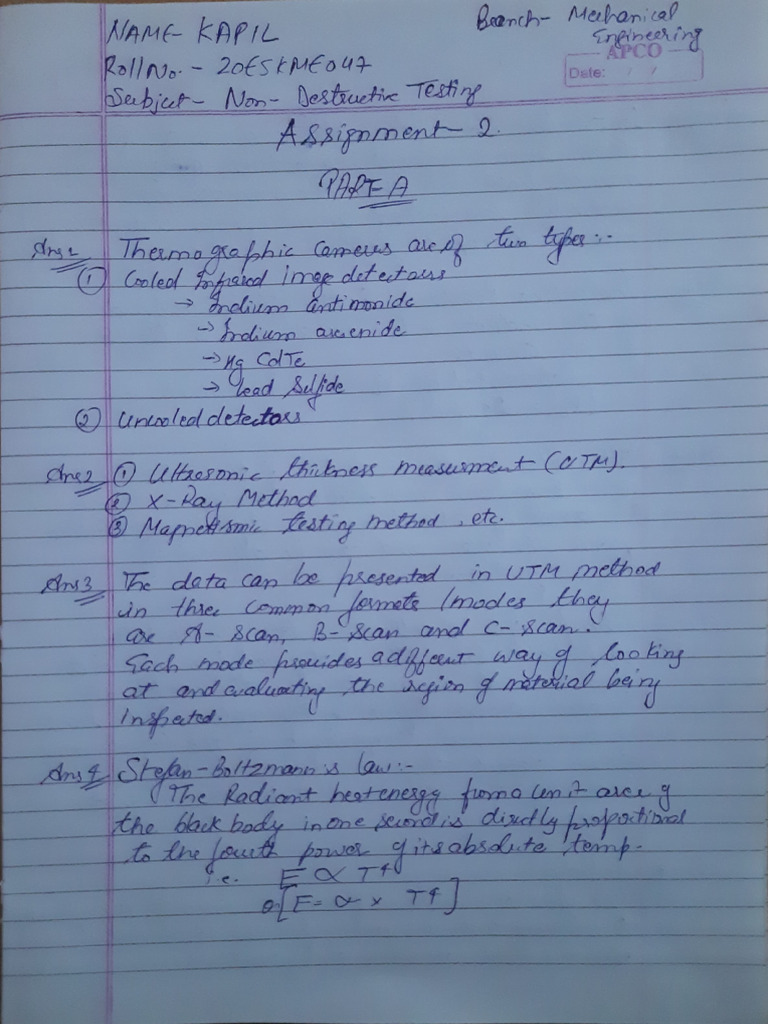 NAME- KAPIL
Branch- Mechanical
Engineering
APCO
Roll No. - 20ESKME047
Date: / /
Subject- Non- Destructive Testing
Assignment 2.
PART A
Ans1 Thermographic cameras are of two types:-
① Cooled Infrared image detectors
→ Indium antimonide
→ Indium arsenide
→ Hg CdTe
→ Lead Sulfide
② Uncooled detectors
Ans2 ① Ultrasonic thickness measurment (UTM).
② X-Ray Method
③ Magnetismic testing method, etc.
Ans3 The data can be presented in UTM method
in three common formats /modes they
are A- Scan, B- Scan and C- Scan.
Each mode provides a different way of looking
at and evaluating the region of material being
Inspected.
Ans 4 Stefan-Boltzmann's law:-
The Radiant heat energy from a unit area of
the black body in one second is directly proportional
to the fourth power of its absolute temp.
i.e. E ∝ T4
[E= × T4]